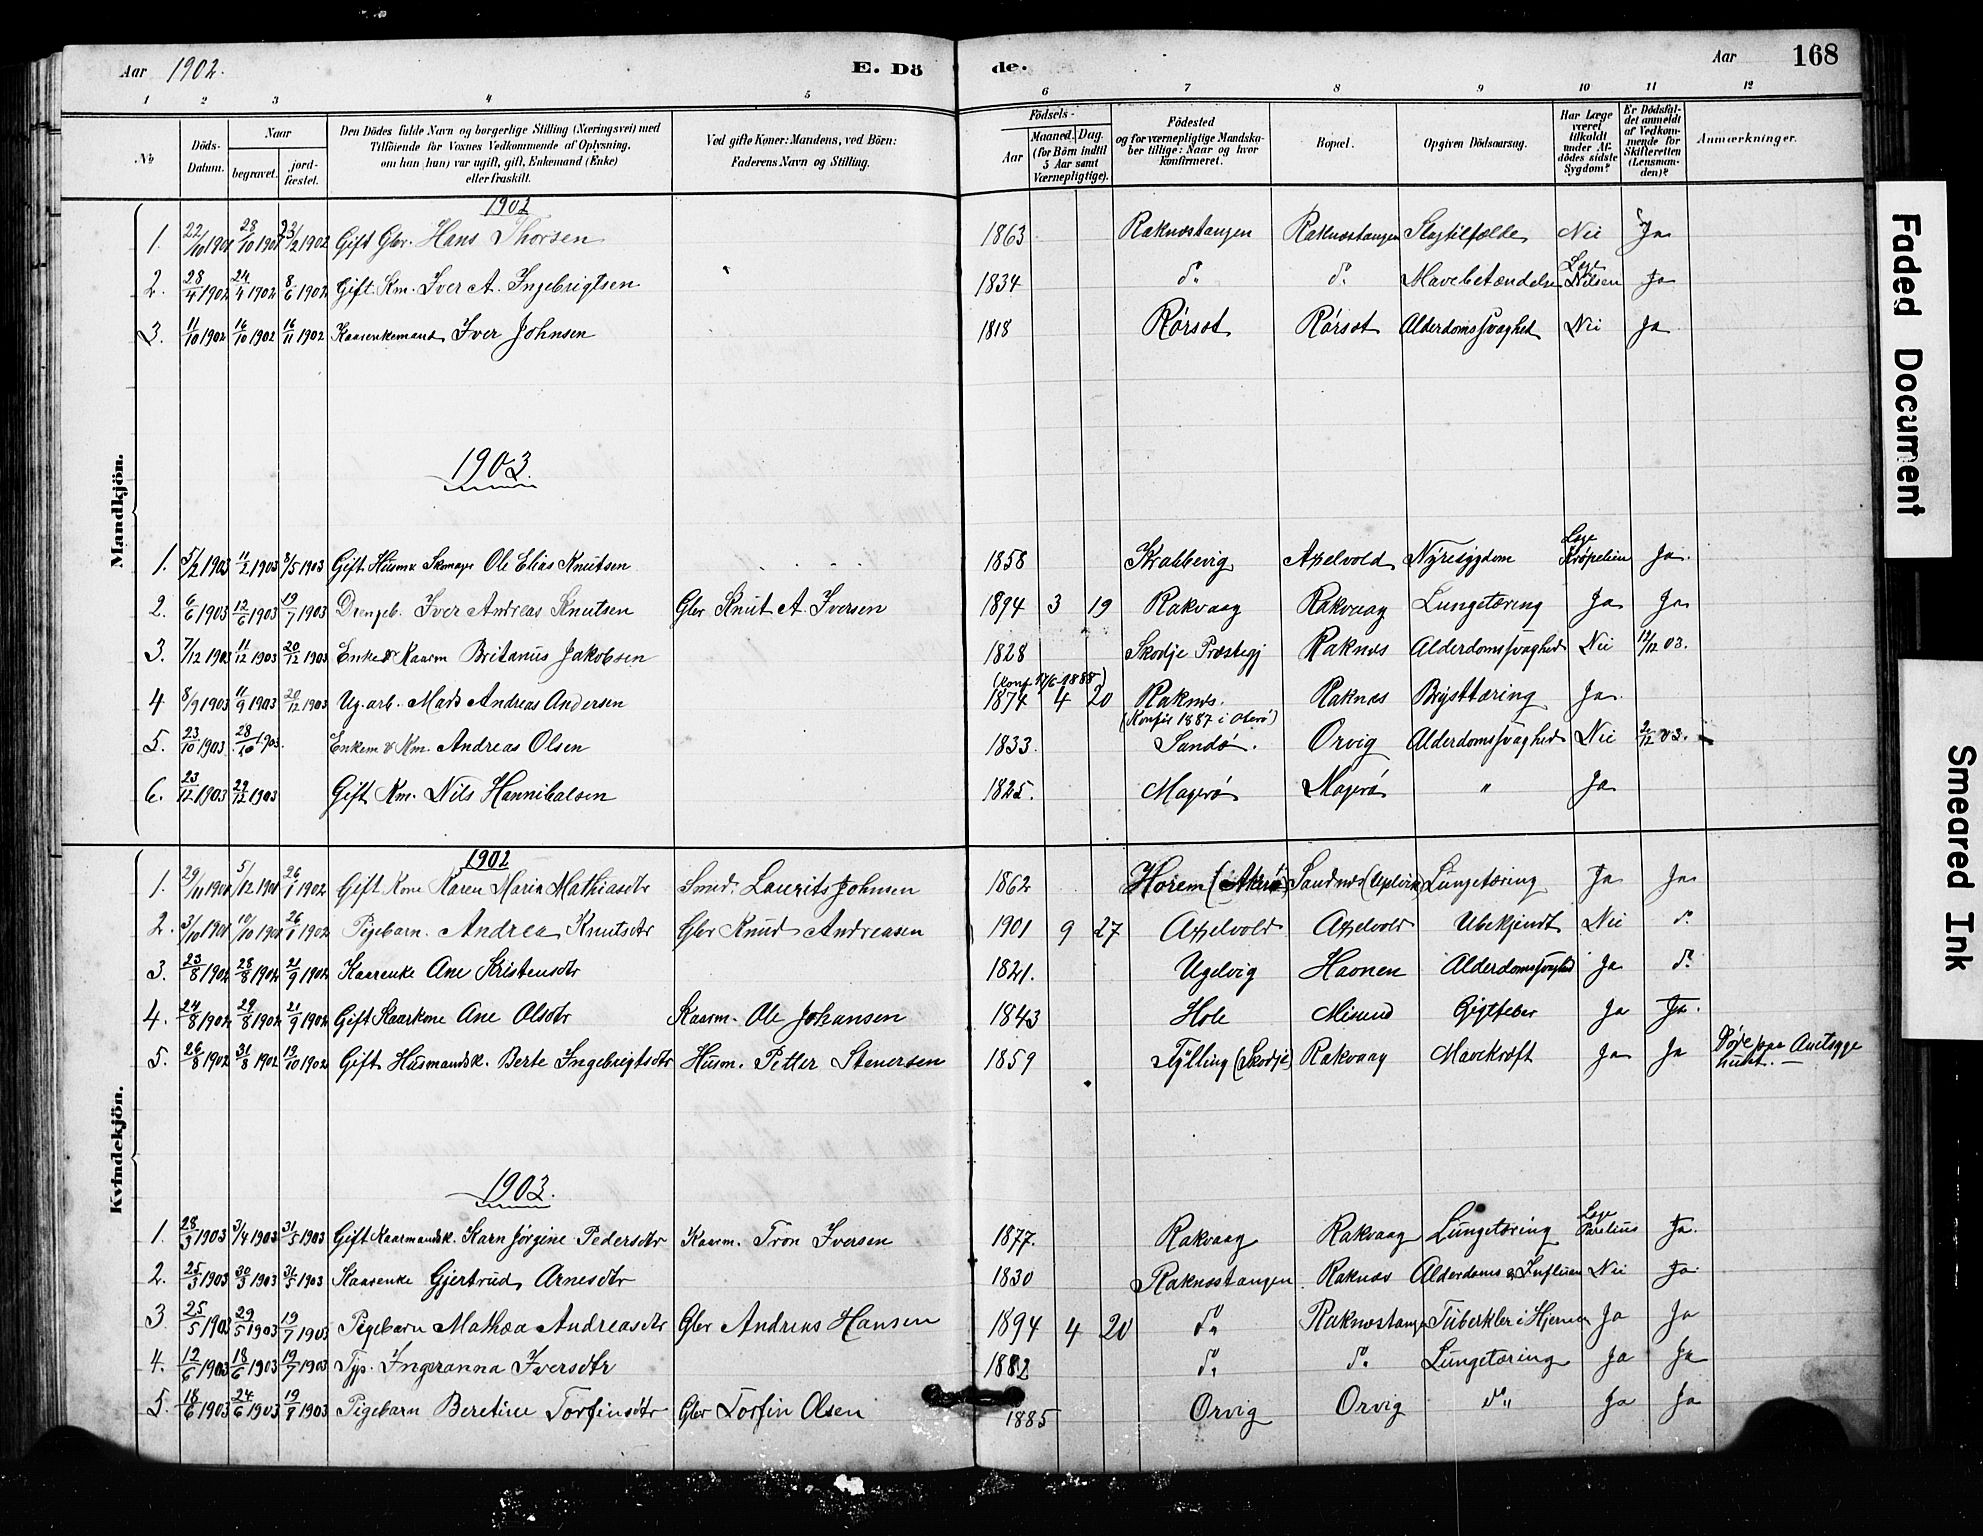 Aar 1902. E. Dö de. Aar 168
1 2 3 4 5 6 7 8 9 10 11 12
No
Döds-Datum.
Naar
begravet. jordfæstet.
Den Dödes fulde Navn og borgerlige Stilling (Næringsvei) med
Tilföiende for Voxnes Vedkommende af Oplysning.
om han (hun) var ugift, gift, Enkemand (Enke)
eller fraskilt.
Ved gifte Koner: Mandens, ved Börn:
Faderens Navn og Stilling.
Födsels-
Aar Maaned. Dag.
(for Börn indtil
5 Aar samt
Værnepligtige).
Födested
og for værnepligtige Mandskaber tillige: Naar og hvor konfirmeret.
Bopæl.
Opgiven Dödsaarsag.
Har Læge været tilkaldt under Afdödes sidste Sygdom?
Er Dödsfaldet anmeldt af Vedkommende for Skifteretten (Lensmanden)?
Anmærkninger.
Mandkjön.
1902
1. 22/10 1901 28/10 1901 23/2 1902 Gift Gbr. Hans Thorsen 1863 Raknæstangen Raknæstangen Slagtilfælde Nei Ja
2. 28/4 1902 24/4 1902 8/6 1902 Gift Km. Iver A. Ingebrigtsen 1834 do. do. Mavebetændelse Læge Nilsen Ja
3. 11/10 1902 16/10 1902 16/11 1902 Kaarenkemand Iver Johnsen 1818 Rørsæt Rørsæt Alderdomssvaghed Nei Ja
1903.
1. 5/2 1903 11/2 1903 3/5 1903 Gift Husmd Skomager Ole Elias Knutsen 1858 Krabbevig Axelvold Nyresygdom Læge Krøpelien Ja.
2. 6/6 1903 12/6 1903 19/7 1903 Drengeb. Iver Andreas Knutsen Gbr Knut A. Iversen 1894 3 19 Rakvaag Rakvaag Lungetæring Ja Ja
3. 7/12 1903 11/12 1903 20/12 1903 Enkem Kaarm Britanus Jakobsen 1828 Skodje Præstegj Raknæs Alderdomssvaghed Nei 12/12 03.
(konf 17/6 1888)
4 8/9 1903 11/9 1903 20/12 1903 Ug. arb. Mads Andreas Andersen 1874 4 20 Raknæs. Raknæs Brysttæring Ja.
(Konfir 1887 i Akerø)
5. 23/10 1903 28/10 1903. Enkem & Km. Andreas Olsen 1833. Sandø. Orvig Alderdomssvaghed Nei 2/12 03.
6. 23/12 1903 27/12 1903 Gift Km. Nils Hannibalsen 1825. Magerø Magerø " Ja
Kvindekjön.
1902
1. 29/11 1901 5/12 1901 26/1 1902 Gift Kone Karen Maria Mathiasdtr Smed. Laurits Johnsen 1862 Horem (Akerø) Sandnæs (Ugelvik) Lungetæring Ja Ja
2. 3/10 1901 10/10 1901 26/1 1902 Pigebarn. Andrea Knutsdtr Gbr Knud Andreasen 1901 9 27 Axelvold Axelvold Ubekjendt Nei do.
3. 23/8 1902 28/8 1902 21/9 1902 Kaarenke Ane Kristensdtr 1821. Ugelvig Havnen Alderdomssvaghed Ja do.
4. 24/8 1902 29/8 1902 21/9 1902 Gift Kaarkone Ane Olsdtr Kaarm. Ole Johansen 1843 Hole Misund Gigtfeber Ja Ja.
5. 26/8 1902 31/8 1902 19/10 1902 Gift Husmandsk. Berte Ingebrigtsdtr Husm. Petter Stenersen 1859 Fylling (Skodje) Rakvaag Mavekræft Ja Ja
1903.
1. 28/3 1903 3/4 1903 31/5 1903 Gift Kaarmandsk. Karn Jørgine Pedersdtr Kaarm. Tron Iversen 1877. Rakvaag Rakvaag Lungetæring Læge Parelius Ja.
2. 25/3 1903 30/3 1903 31/5 1903 Kaarenke Gjertrud Arnesdtr 1830 Raknæstangen Raknæs Alderdoms & Influen Nei Ja.
3 25/5 1903 29/5 1903 19/7 1903 Pigebarn Mathea Andreasdtr Gbr Andreas Hansen 1894 4 20 do. Raknæstangen Tuberkler i Hjernen Ja Ja
4. 12/6 1903 18/6 1903 19/7 1903 Typ. Ingeranna Iversdtr 1882 do. do. Lungetæring Ja Ja
5. 18/6 1903 24/6 1903 19/8 1903 Pigebarn Beretine Torfinsdtr Gbr Torfin Olsen 1885 Orvig Orvig do. Ja Ja
Faded Document
Smeared Ink